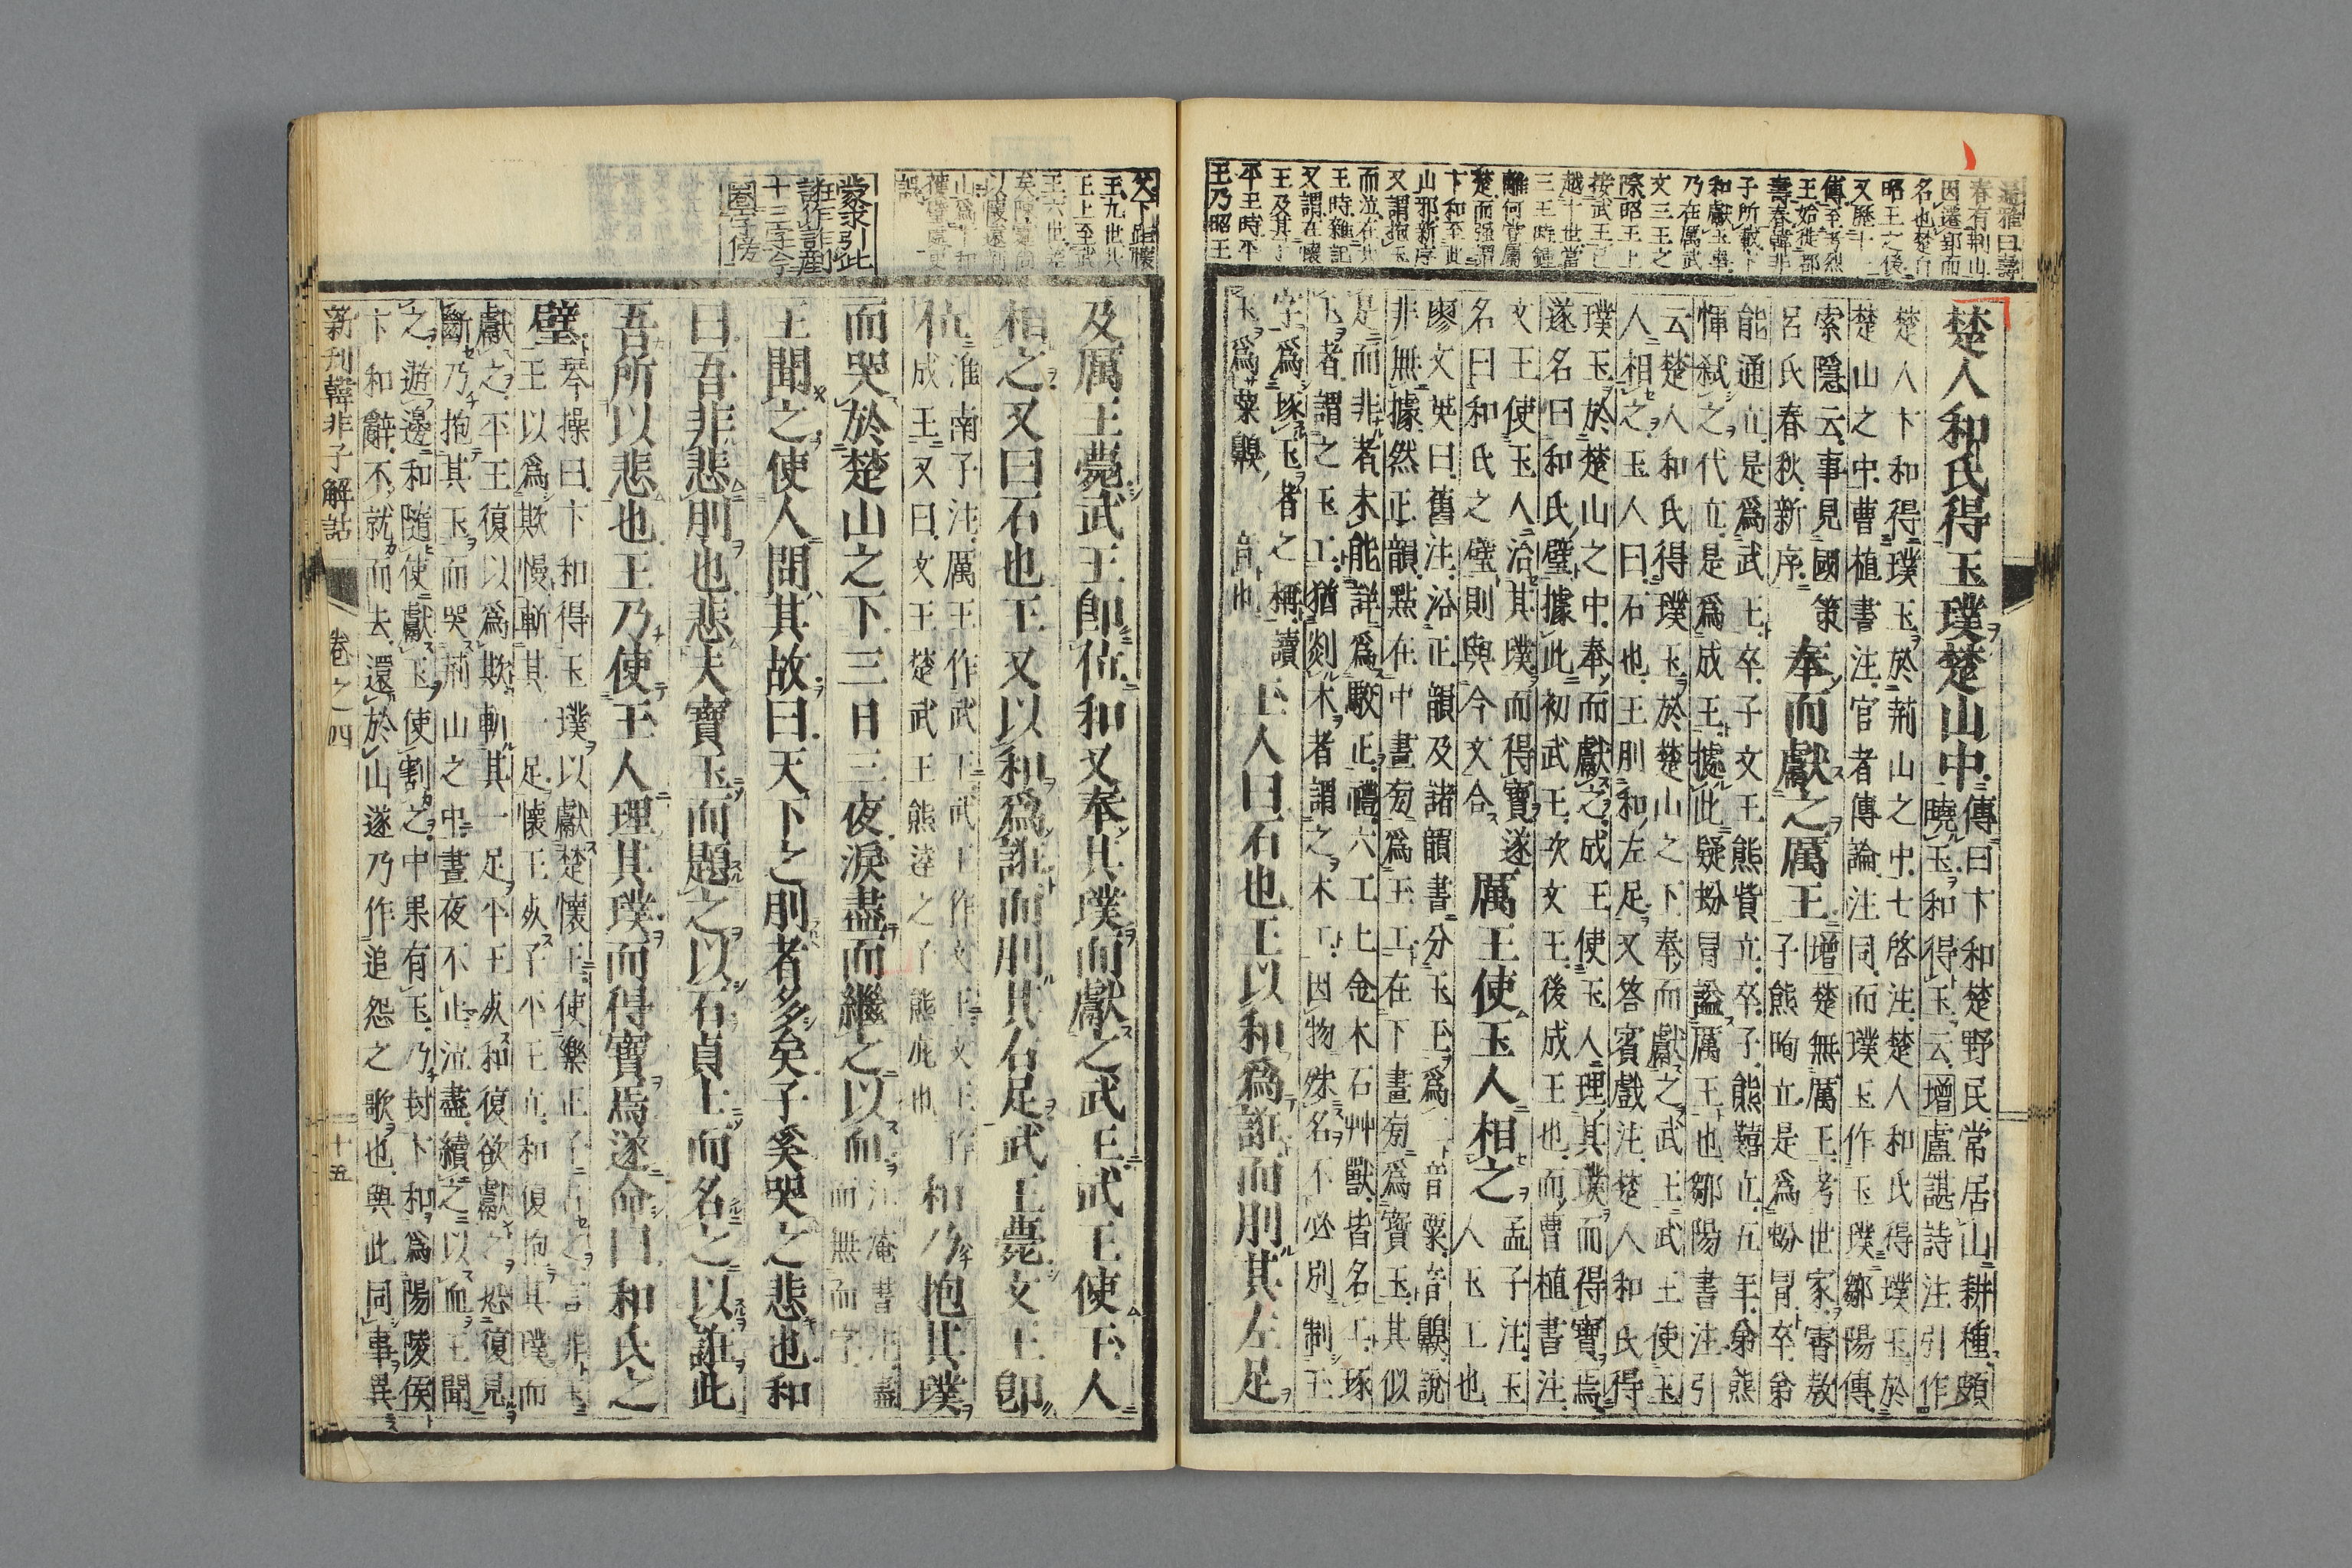 楚人和氏得玉璞楚山中傳曰卞和楚野民常居山耕種頗
曉玉和得玉云增盧諶詩注引作
楚人卞和得璞玉於荊山之中七啓注楚人和氏得璞玉於
楚山之中曹植書注官者傳論注同而璞玉作玉璞鄒陽傳
索隱云事見國策
呂氏春秋新序
奉而獻之厲王
增楚無厲王考世家霄敖
子熊眴立是爲蚡冒卒弟熊
能通立是爲武王卒子文王熊貲立卒子熊囏立五年弟熊
惲弑之代立是爲成王據此疑蚡冒謚厲王也鄒陽書注引
云楚人和氏得璞玉於楚山之下奉而獻之武王武王使玉
人相之玉人曰石也王刖和左足又答賓戲注楚人和氏得
璞玉於楚山之中奉而獻之成王使玉人理其璞而得寶焉
遂名曰和氏璧據此初武王次文王後成王也而曹植書注
文王使玉人治其璞而得寶遂
名曰和氏之璧則與今文合
厲王使玉人相之
孟子注玉
人玉工也
廖文英曰舊注浴正韻及諸韻書分玉王爲二音粟音䫔說
非無據然正韻點在中畫旁爲玉工在下畫旁爲寶玉其似
是而非者未能詳爲駮正禮六工上金木石艸獸皆名工琢
玉者謂之玉工猶剡木者謂之木工因物殊名不必別制玉
字爲琢玉者之稱讀
玉爲粟䫔音也
玉人曰石也王以和爲誑而刖其左足
及厲王薨武王卽位和又奉其璞而獻之武王武王使玉人
相之又曰石也王又以和爲誑而刖其右足武王薨文王卽
位
淮南子注厲王作武王武王作文王文王作
成王又曰文王楚武王熊達之子熊疵也
和乃抱其璞
而哭於楚山之下三日三夜淚盡而繼之以
王聞之使人問其故曰天下之刖者多矣子奚哭之悲也和
曰吾非悲刖也悲夫寶玉而題之以石貞士而名之以誑此
吾所以悲也王乃使玉人理其璞而得寶焉遂命曰和氏之
璧
琴操曰卞和得玉璞以獻楚懷王使樂正子占之言非玉
王以爲欺慢斬其一足懷王死子平王立和復抱其璞而
獻之平王復以爲欺斬其一足平王死和復欲獻之恐復見
斷乃抱其玉而哭荊山之中晝夜不止泣盡續之以血王聞
之遊邊和隨使獻玉使割之中果有玉乃封卞和爲陽陵侯
卞和辭不就而去還於山遂乃作追怨之歌也與此同事異
新刊韓非子解詁
卷之四
十五
春有荊山
因遷郢而
名也楚自
昭王之後
又歷十一
傳至考烈
王始徙都
壽春韓非
子所載卞
和獻玉事
乃在厲武
文三王之
際昭王上
接武王已
越十世當
三王時鍾
離何嘗屬
楚而强謂
卞和至此
山邪新序
又謂抱玉
而泣在共
王時雜記
又謂在懷
王及其子
平王時平
王乃昭王
父下距懷
王九世共
王上至武
王六世差
蒙求引此
誑作詐刖